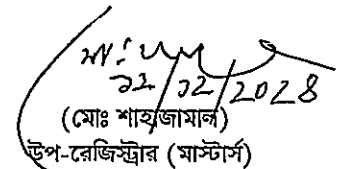 ১২/১২/২০২৪
(মোঃ শাহজামান)
উপ-রেজিস্ট্রার (মাস্টার্স)